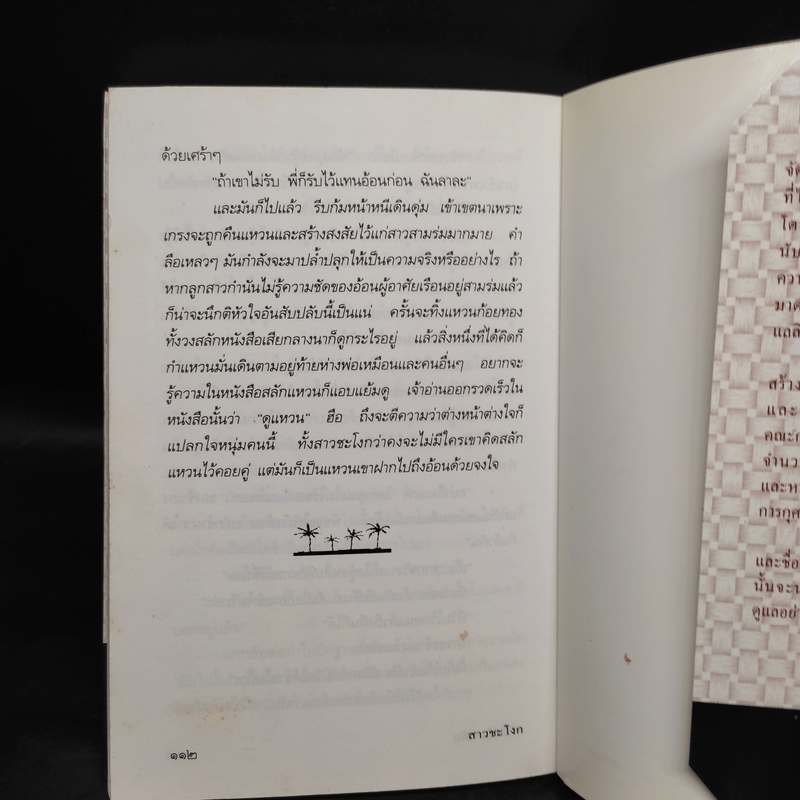 ด้วยเศร้าๆ
"ถ้าเขาไม่รับ พี่ก็รับไว้แทนอ้อนก่อน ฉันลาละ"
และมันก็ไปแล้ว รีบก้มหน้าหนีเดินดุ่ม เข้าเขตนาเพราะ
เกรงจะถูกคืนแหวนและสร้างสงสัยไว้แก่สาวสามร่มมากมาย คำ
ลือเหลวๆ มันกำลังจะมาปล้ำปลุกให้เป็นความจริงหรืออย่างไร ถ้า
หากลูกสาวกำนันไม่รู้ความชัดของอ้อนผู้อาศัยเรือนอยู่สามร่มแล้ว
ก็น่าจะนึกติหัวใจอันสับปลับนี้เป็นแน่ ครั้นจะทิ้งแหวนก้อยทอง
ทั้งวงสลักหนังสือเสียกลางนาก็ดูกระไรอยู่ แล้วสิ่งหนึ่งที่ได้คิดก็
กำแหวนมั่นเดินตามอยู่ท้ายห่างพ่อเหมือนและคนอื่นๆ อยากจะ
รู้ความในหนังสือสลักแหวนก็แอบแย้มดู เจ้าอ่านออกรวดเร็วใน
หนังสือนั้นว่า "ดูแหวน" ฮือ ถึงจะตีความว่าต่างหน้าต่างใจก็
แปลกใจหนุ่มคนนี้ ทั้งสาวชะโงกว่าคงจะไม่มีใครเขาคิดสลัก
แหวนไว้คอยคู่ แต่มันก็เป็นแหวนเขาฝากไปถึงอ้อนด้วยจงใจ
สาวชะโงก
๑๑๒
จัด
ที่ไ
โต
นับ
ควา
มาต
แลสิ
สร้าง
และ
คณะก
จำนว
และห
การกุศ
และชื่อ
นั้นจะบ
ดูแลอย่า